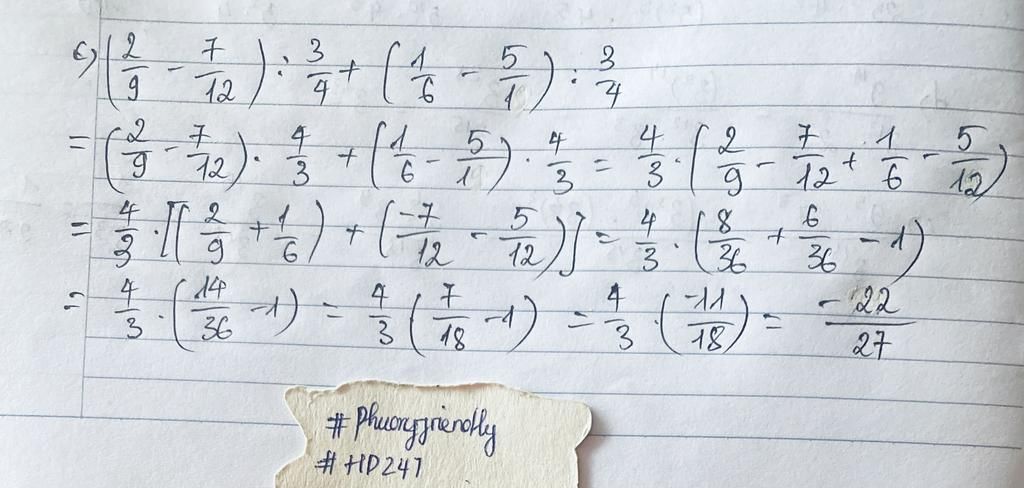 c) (2/9 - 7/12) : 3/4 + (1/6 - 5/1) : 3/4
= (2/9 - 7/12) . 4/3 + (1/6 - 5/1) . 4/3 = 4/3 . (2/9 - 7/12 + 1/6 - 5/12)
= 4/3 . [(2/9 + 1/6) + (-7/12 - 5/12)] = 4/3 . (8/36 + 6/36 - 1)
= 4/3 . (14/36 - 1) = 4/3 (7/18 - 1) = 4/3 . (-11/18) = -22/27
# Phuongfriendly
# HD247